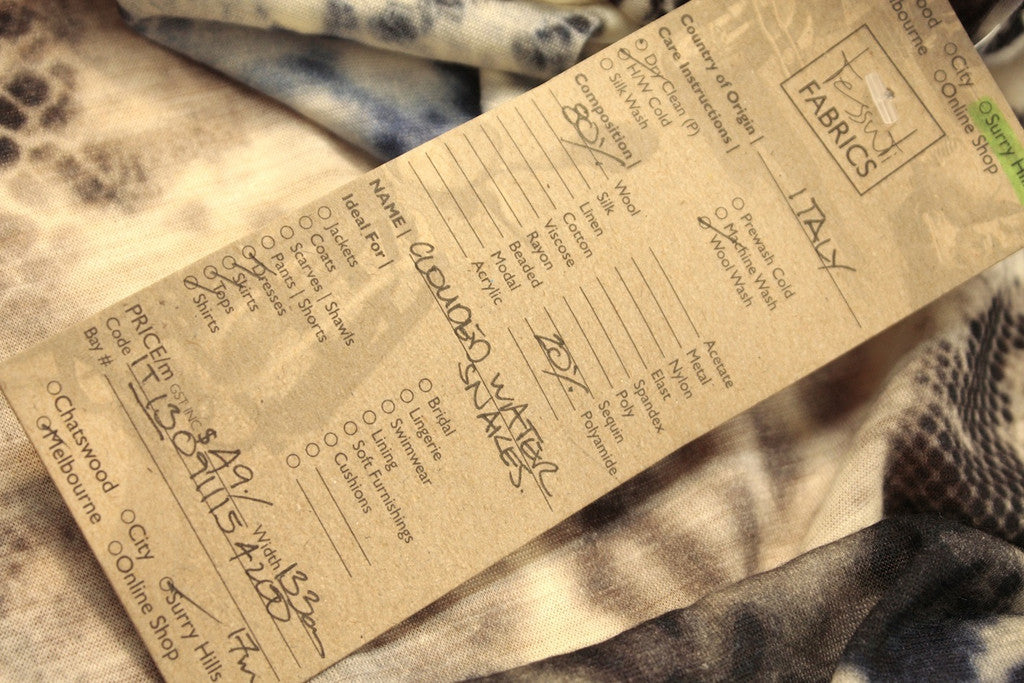 ood
ourne
City
Online Shop
Surry Hi
Tessuti
FABRICS
Country of Origin | ITALY
Care Instructions |
Dry Clean (P)
H/W Cold
Silk Wash
Prewash Cold
Machine Wash
Wool Wash
Composition |
80% Wool
Silk
Linen
Cotton
Viscose
Rayon
Beaded
Modal
Acrylic
Acetate
Metal
Nylon
Elast
Spandex
Poly
Sequin
20% Polyamide
NAME | CLOUDED WATER
SNAKES.
Ideal For |
Jackets
Coats
Scarves | Shawls
Pants | Shorts
Dresses
Skirts
Tops
Shirts
Bridal
Lingerie
Swimwear
Lining
Soft Furnishings
Cushions
PRICE/m GST INC $ 49./ Width 133cm
Code
Bay #
Chatswood
Melbourne
City
Online Shop
Surry Hills
17m